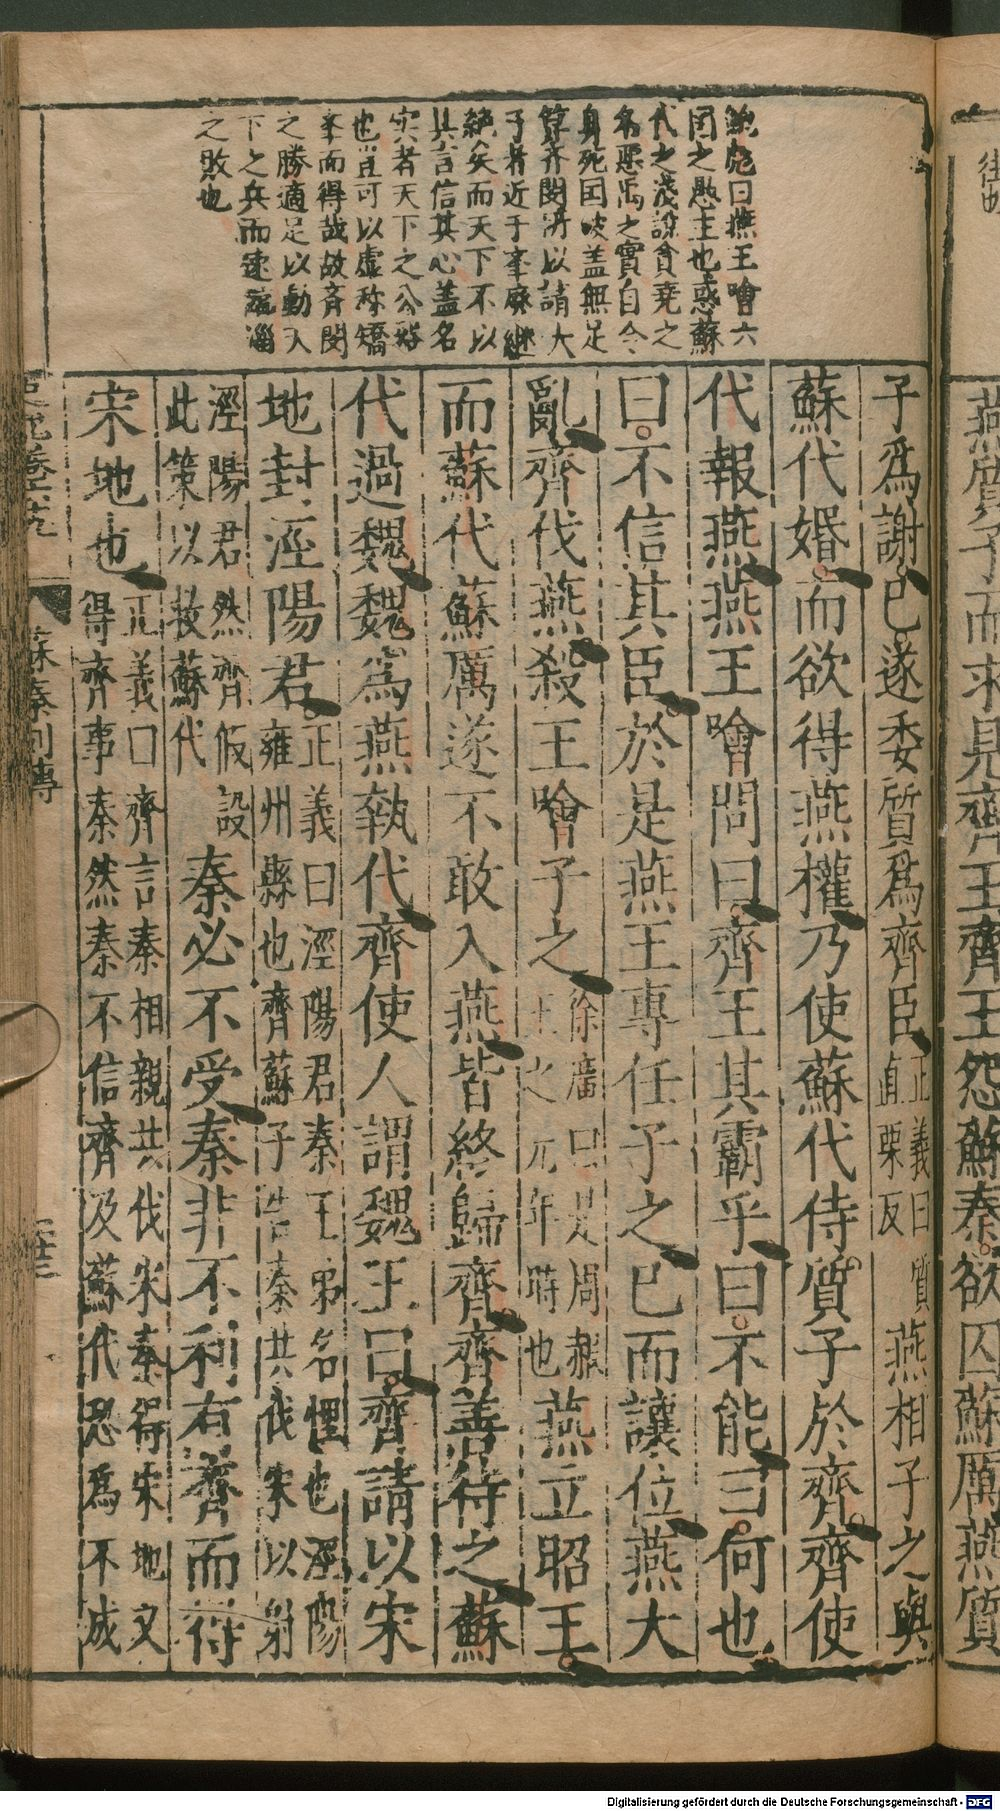 燕質子而求見齊王齊王怨蘇秦欲囚蘇厲燕質
鮑彪曰燕王噲六
國之愚主也惑蘇
代之淺說貪堯之
名惡禹之實自令
身死國破盖無足
算齊閔所以請大
子者近于
絕矣而天下不以
其言信其心盖名
實者天下之公器
也豈可以虛称矯
舉而得哉故齊閔
之勝適足以動天
下之兵而速臨淄
之敗也
子爲謝已遂委質爲齊臣正義曰質真栗反燕相子之與
蘇代婚而欲得燕權乃使蘇代侍質子於齊齊使
代報燕燕王噲問曰齊王其霸乎曰不能曰何也
曰不信其臣於是燕王專任子之已而讓位燕大
亂齊伐燕殺王噲子之徐廣曰是周赧王之元年時也燕立昭王
而蘇代蘇厲遂不敢入燕皆終歸齊齊善待之蘇
代過魏魏爲燕執代齊使人謂魏王曰齊請以宋
地封涇陽君正義曰涇陽君秦王弟名悝也涇陽雍州縣也齊蘇子告秦共伐宋以封
涇陽君然齊假設此策以救蘇代秦必不受秦非不利有齊而得
宋地也正義曰齊言秦相親共伐宋秦得宋地又得齊事秦然秦不信齊及蘇代恐爲不成
蘇秦列傳